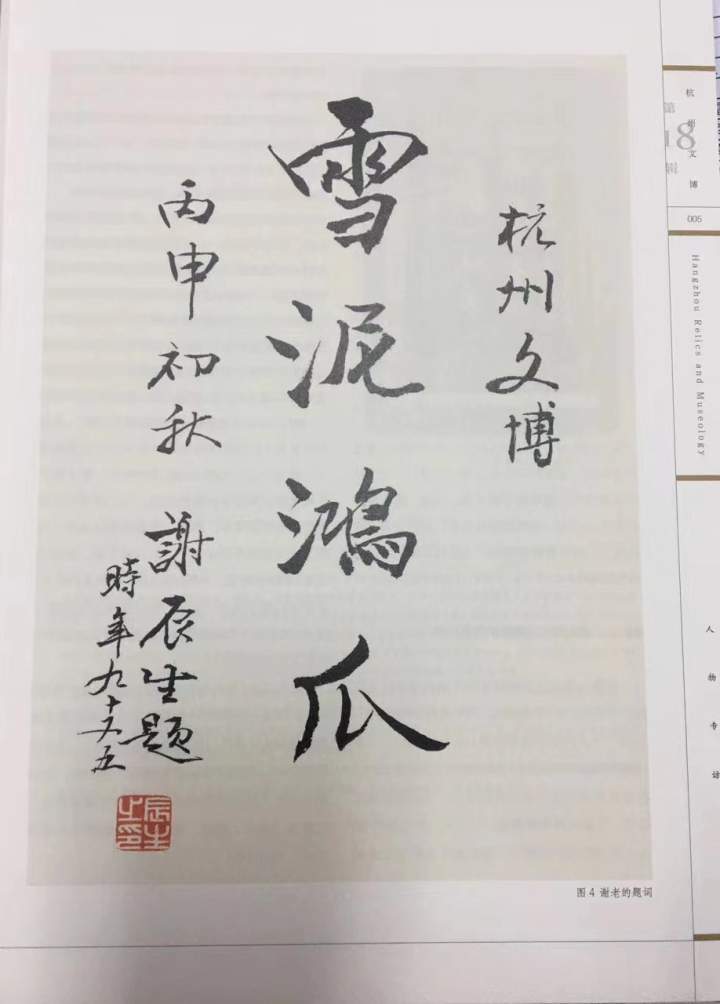 杭州文博
雪泥鸿爪
丙申初秋
謝辰生題
時年九十又五
辰生之印
图 4 谢老的题词
杭州文博
第
18
辑
005
Hangzhou Relics and Museology
人物专访